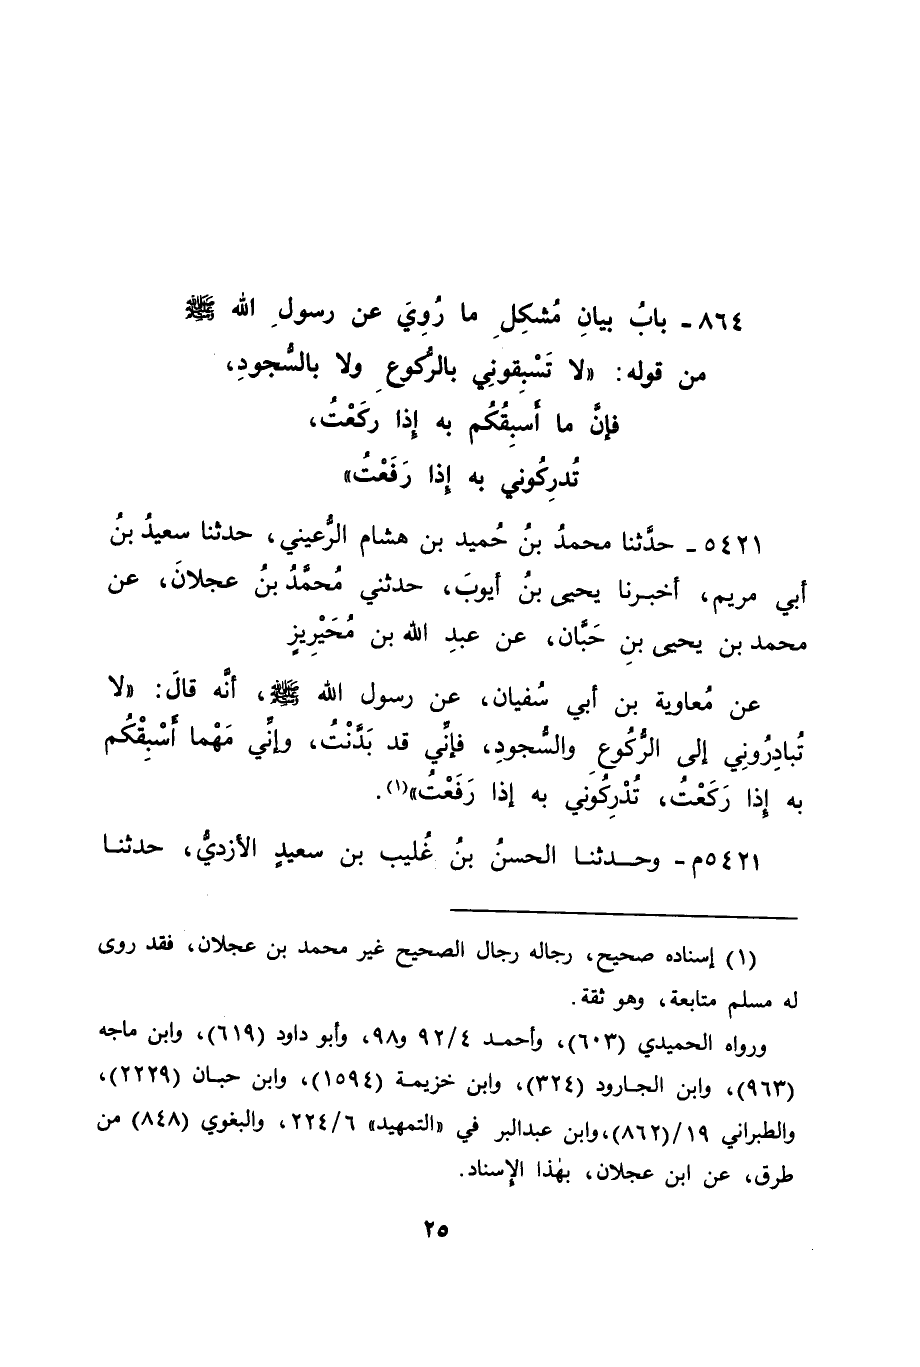 ٨٦٤ ـ بابُ بيانِ مُشكِلِ ما رُوِيَ عن رسولِ الله ﷺ
من قوله: «لا تَسْبِقوني بالرُّكوعِ ولا بالسُّجودِ،
فإنَّ ما أَسبِقُكُم به إِذا ركَعْتُ،
تُدرِكُوني به إِذا رَفَعْتُ»
٥٤٢١ ـ حدَّثنا محمدُ بنُ حُميد بن هشام الرُّعيني، حدثنا سعيدُ بنُ
أبي مريم، أخبرنا يحيى بنُ أيوبَ، حدثني مُحمَّدُ بنُ عجلانَ، عن
محمد بن يحيى بنِ حَبَّان، عن عبدِ الله بن مُحَيْرِيزٍ
عن مُعاوية بن أبي سُفيان، عن رسول الله ﷺ، أنَّه قالَ: «لا
تُبادِرُوني إلى الرُّكُوعِ والسُّجودِ، فإنِّي قد بَدَّنْتُ، وإنِّي مَهْما أَسْبِقْكُم
به إِذا رَكَعْتُ، تُدْرِكُوني به إذا رَفَعْتُ»(١).
٥٤٢١م ـ وحدثنا الحسنُ بنُ غُليب بن سعيدٍ الأزديُّ، حدثنا
(١) إسناده صحيح، رجاله رجال الصحيح غير محمد بن عجلان، فقد روى
له مسلم متابعة، وهو ثقة.
ورواه الحميدي (٦٠٣)، وأحمد ٩٢/٤ و٩٨، وأبو داود (٦١٩)، وابن ماجه
(٩٦٣)، وابن الجارود (٣٢٤)، وابن خزيمة (١٥٩٤)، وابن حبان (٢٢٢٩)،
والطبراني ١٩/(٨٦٢)،وابن عبدالبر في «التمهيد» ٢٢٤/٦، والبغوي (٨٤٨) من
طرق، عن ابن عجلان، بهٰذا الإِسناد.
٢٥